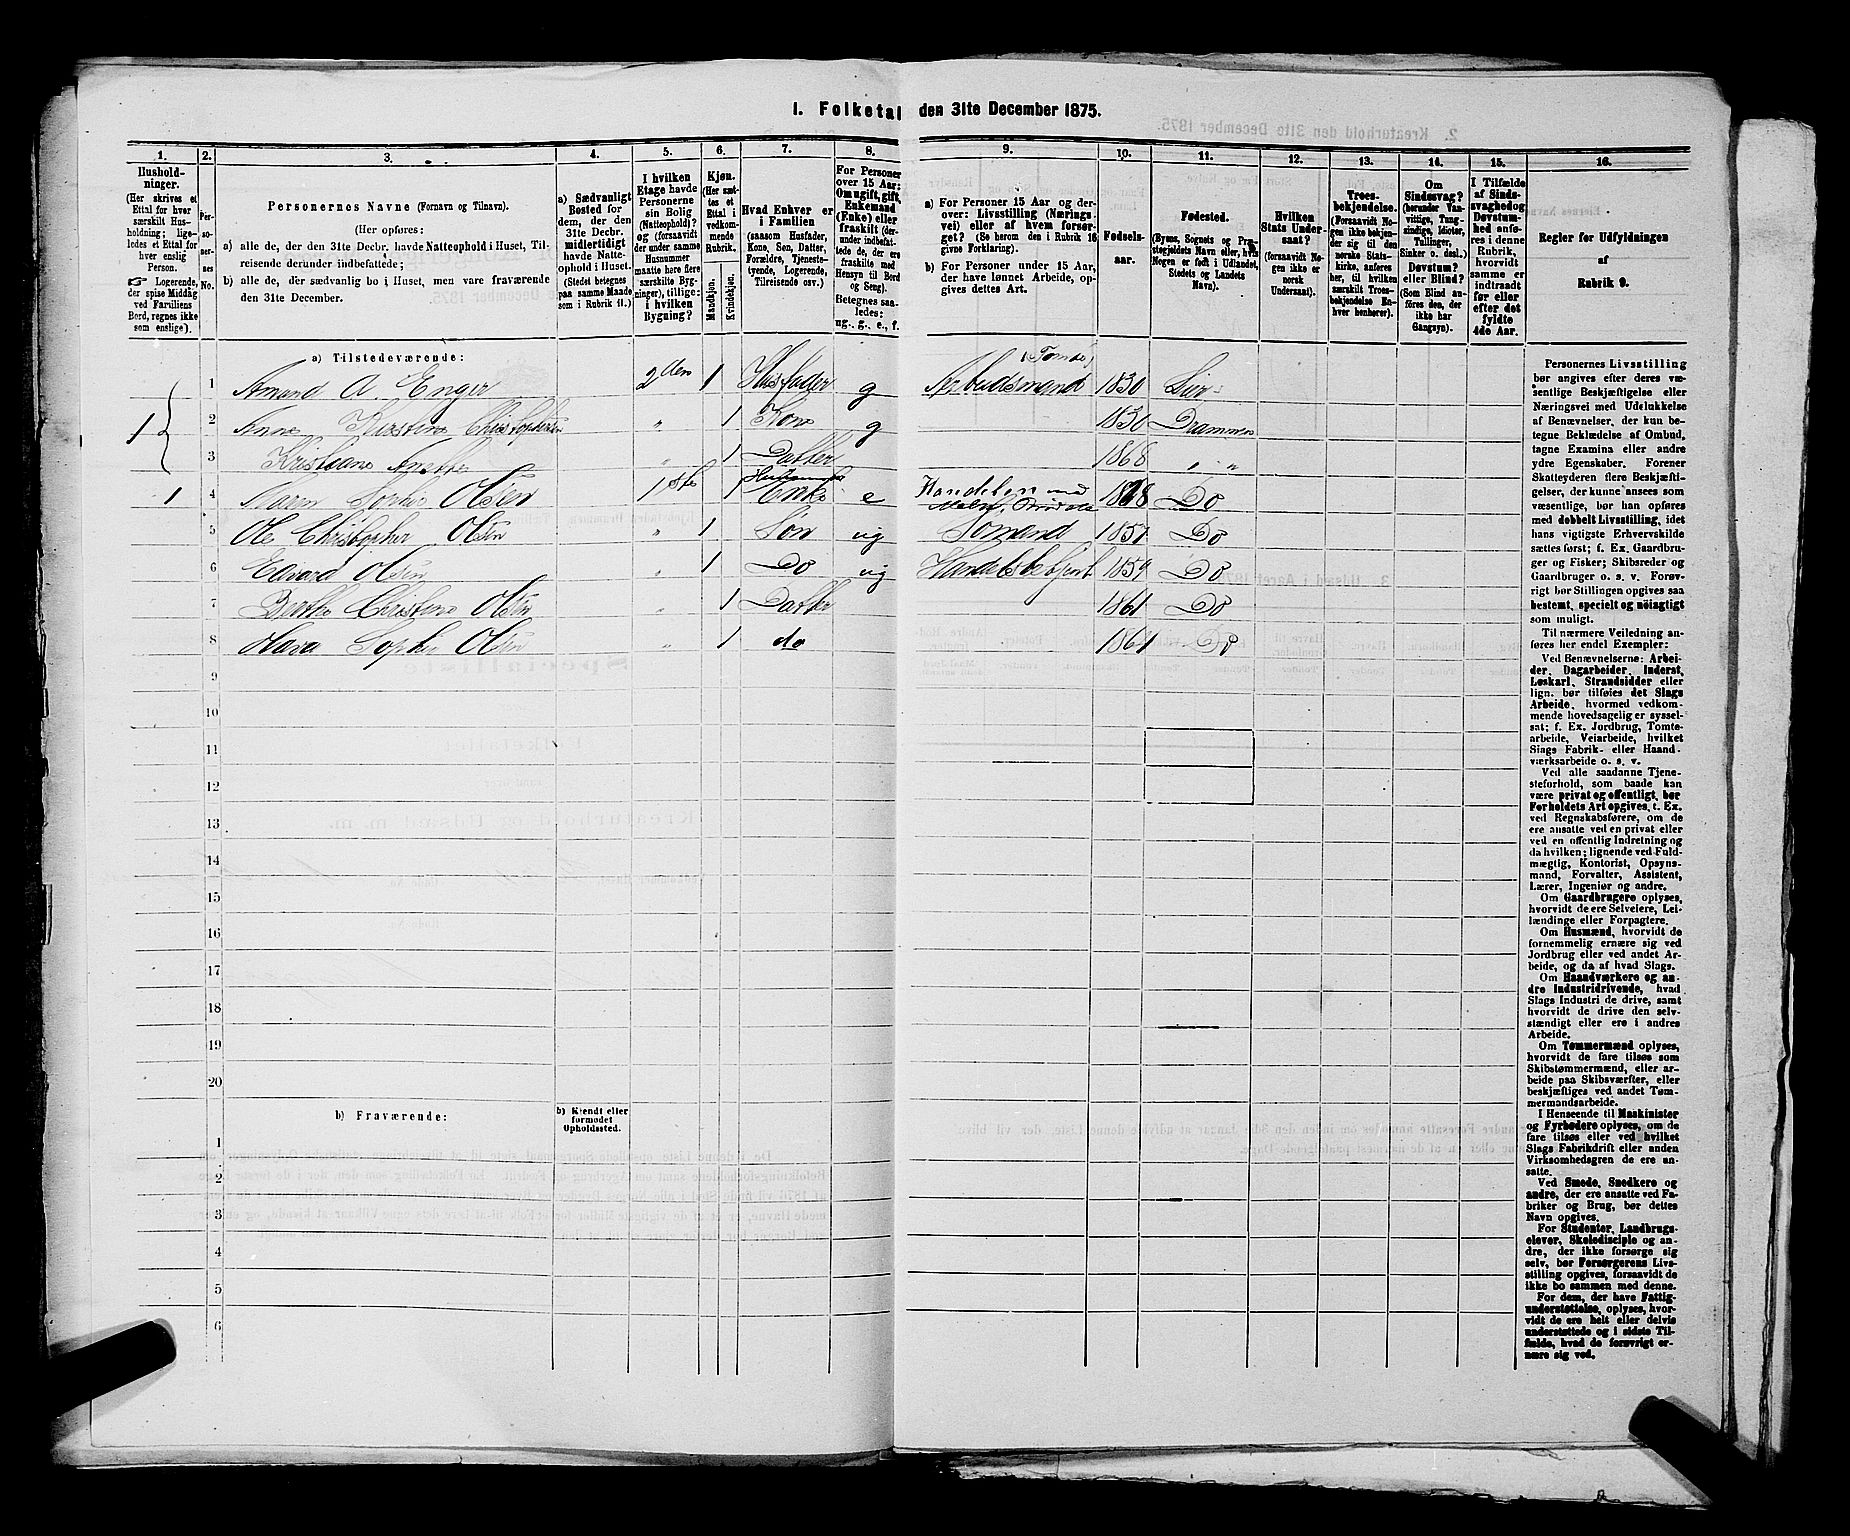 1. Folketal den 31te December 1875.
1. 2. 3. 4. 5. 6. 7. 8. 9. 10. 11. 12. 13. 14. 15. 16.
Hushold-
ninger.
(Her skrives et
Ettal for hver
særskilt Hus-
holdning; lige-
ledes et Ettal for
hver enslig
Person.
☞ Logerende,
der spise Middag
ved Familiens
Bord, regnes ikke
som enslige).
Per-
so-
ner-
nes
No.
Personernes Navne (Fornavn og Tilnavn).
(Her opføres:
a) alle de, der den 31te Decbr. havde Natteophold i Huset, Til-
reisende derunder indbefattede;
b) alle de, der sædvanlig bo i Huset, men vare fraværende
den 31te December.
a) Sædvanligt
Bosted for
dem, der den
31te Decbr.
midlertidigt
havde Natte-
ophold i Huset.
(Stedet betegnes
paa samme Maade
som i Rubrik 11.)
I hvilken
Etage havde
Personerne
sin Bolig
(Natteophold)?
og (forsaavidt
der under samme
Husnummer
maatte høre flere
særskilte Byg-
ninger), tillige:
i hvilken
Bygning?
Kjøn.
(Her sæt-
tes et
Ettal i
vedkom-
mende
Rubrik.
Mandkjøn.
Kvindekjøn.
Hvad Enhver er
i Familien
(saasom Husfader,
Kone, Søn, Datter,
Forældre, Tjeneste-
tyende, Logerende,
Tilreisende osv.)
For Personer
over 15 Aar:
Om ugift, gift,
Enkemand
(Enke) eller
fraskilt (der-
under indbefat-
tede de, der ere
fraskilte med
Hensyn til Bord
og Seng).
Betegnes saa-
ledes:
ug., g., e., f.
a) For Personer 15 Aar og der-
over: Livsstilling (Nærings-
vei) eller af hvem forsør-
get? (Se herom den i Rubrik 16
givne Forklaring).
b) For Personer under 15 Aar,
der have lønnet Arbeide, op-
gives dettes Art.
Fødsels-
aar.
Fødested.
(Byens, Sognets og Præ-
stegjeldets Navn eller, hvis
Nogen er født i Udlandet,
Stedets og Landets
Navn).
Hvilken
Stats Under-
saat?
(forsaavidt No-
gen ikke er
norsk
Undersaat).
Troes-
bekjendelse.
(Forsaavidt No-
gen ikke bekjen-
der sig til den
norske Stats-
kirke, anføres
her, til hvilken
særskilt Troes-
bekjendelse En-
hver henhører).
Om
Sindssvag?
(herunder Van-
vittige, Tung-
sindige, Idioter,
Tullinger,
Sinker o. desl.)
Døvstum?
eller Blind?
(Som Blind an-
føres den, der
ikke har
Gangsyn).
I Tilfælde
af Sinds-
svaghed og
Døvstum-
hed anfø-
res i denne
Rubrik,
hvorvidt
samme er
indtraadt
før eller
efter det
fyldte
4de Aar.
Regler for Udfyldningen
af
Rubrik 9.
a) Tilstedeværende:
1 Amund A. Enger 2den 1 Husfader g Arbeidsmand (Tomte) 1830 Lier
1 2 Anne Kirstine Christophersen " 1 Kone g 1830 Drammen
3 Kristiane Anette " 1 Datter 1868 " "
1 4 Maren Sophie Olsen 1ste 1 Enke e Handelen 18 Do
5 Ole Christopher Olsen " 1 Søn ug Sømand 1857 Do
6 Edvard Olsen " 1 Do ug Handelsbetjent 1859 Do
7 Berthe Christine Olsen " 1 Datter 1861 Do
8 Hara Sophie Olsen " 1 do 1861 Do
9
10
11
12
13
14
15
16
17
18
19
20
b) Fraværende:
b) Kjendt eller
formodet
Opholdssted.
1
2
3
4
5
6
Personernes Livsstilling
bør angives efter deres væ-
sentlige Beskjæftigelse eller
Næringsvei med Udelukkelse
af Benævnelser, der kun be-
tegne Beklædelse af Ombud,
tagne Examina eller andre
ydre Egenskaber. Forener
Skatteyderen flere Beskjæfti-
gelser, der kunne ansees som
væsentlige, bør han opføres
med dobbelt Livsstilling, idet
hans vigtigste Erhvervskilde
sættes først; f. Ex. Gaardbru-
ger og Fisker; Skibsreder og
Gaardbruger o. s. v. Forøv-
rigt bør Stillingen opgives saa
bestemt, specielt og nöiagtigt
som muligt.
Til nærmere Veiledning an-
føres her endel Exempler:
Ved Benævnelserne: Arbei-
der, Dagarbeider, Inderst,
Løskarl, Strandsidder eller
lign. bør tilføies det Slags
Arbeide, hvormed vedkom-
mende hovedsagelig er syssel-
sat; f. Ex. Jordbrug, Tomte-
arbeide, Veiarbeide, hvilket
Slags Fabrik- eller Haand-
værksarbeide o. s. v.
Ved alle saadanne Tjene-
steforhold, som baade kan
være privat og offentligt, bør
Forholdets Art opgives, t. Ex.
ved Regnskabsførere, om de
ere ansatte ved en privat eller
ved en offentlig Indretning og
da hvilken; lignende ved Fuld-
mægtig, Kontorist, Opsyns-
mand, Forvalter, Assistent,
Lærer, Ingeniør og andre.
Om Gaardbrugere oplyses,
hvorvidt de ere Selveiere, Lei-
lændinge eller Forpagtere.
Om Husmænd, hvorvidt de
fornemmelig ernære sig ved
Jordbrug eller ved andet Ar-
beide, og da af hvad Slags.
Om Haandværkere og an-
dre Industridrivende, hvad
Slags Industri de drive, samt
hvorvidt de drive den selv-
stændigt eller ere i andres
Arbeide.
Om Tømmermænd oplyses,
hvorvidt de fare tilsøs som
Skibstømmermænd, eller ar-
beide paa Skibsværfter, eller
beskjæftiges ved andet Tøm-
mermandsarbeide.
I Henseende til Maskinister
og Fyrbødere oplyses, om de
fare tilsøs eller ved hvilket
Slags Fabrikdrift eller anden
Virksomhedsgren de ere an-
satte.
Ved Smede, Snedkere og
andre, der ere ansatte ved Fa-
briker og Brug, bør dettes
Navn opgives.
For Studenter, Landbrugs-
elever, Skoledisciple og an-
dre, der ikke forsørge sig
selv, bør Forsørgerens Livs-
stilling opgives, forsaavidt de
ikke bo sammen med denne.
For dem, der have Fattig-
understøttelse, oplyses, hvor-
vidt de ere helt eller delvis
understøttede og i sidste Til-
fælde, hvad de forøvrigt er-
nære sig ved.